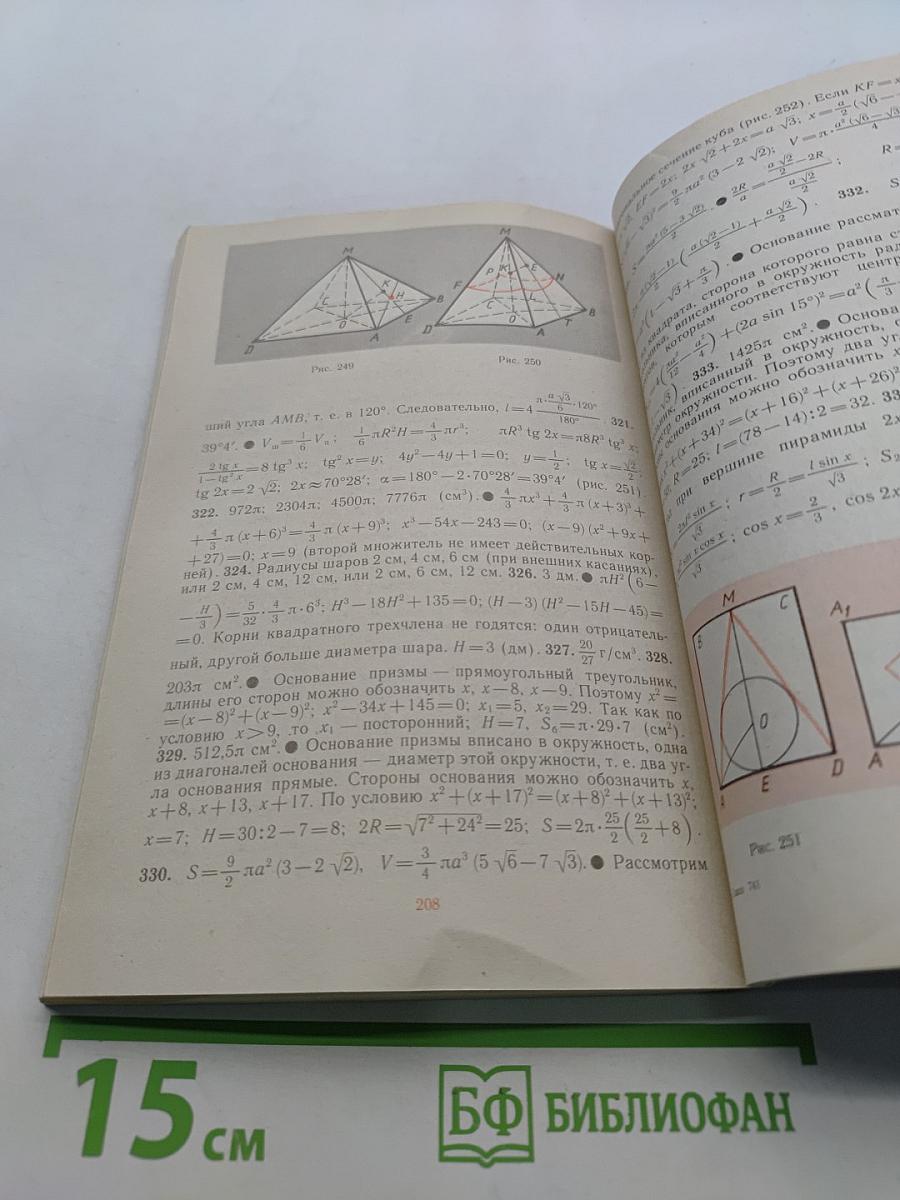 M
K
H
C
B
O
E
D
A
Рис. 249
M
P
K
E
F
N
C
L
O
B
D
A
T
Рис. 250
ший угла AMB, т. е. в 120°. Следовательно, l=4 (π·(a√3/6)·120°)/180°. 321.
39°4′. ● Vш=1/6 Vп; 1/6 πR²H=4/3 πr³; πR³ tg 2x=π8R³ tg³ x;
2 tg x/(1−tg² x)=8 tg³ x; tg² x=y; 4y²−4y+1=0; y=1/2; tg x=√2/2;
tg 2x=2√2; 2x≈70°28′; α=180°−2·70°28′=39°4′ (рис. 251).
322. 972π; 2304π; 4500π; 7776π (см³). ● 4/3 πx³+4/3 π(x+3)³+
+4/3 π(x+6)³=4/3 π(x+9)³; x³−54x−243=0; (x−9)(x²+9x+
+27)=0; x=9 (второй множитель не имеет действительных кор-
ней). 324. Радиусы шаров 2 см, 4 см, 6 см (при внешних касаниях),
или 2 см, 4 см, 12 см, или 2 см, 6 см, 12 см. 326. 3 дм. ● πH²(6−
−H/3)=5/32·4/3 π·6³; H³−18H²+135=0; (H−3)(H²−15H−45)=
=0. Корни квадратного трехчлена не годятся: один отрицатель-
ный, другой больше диаметра шара. H=3 (дм). 327. 20/27 г/см³. 328.
203π см². ● Основание призмы — прямоугольный треугольник,
длины его сторон можно обозначить x, x−8, x−9. Поэтому x²=
=(x−8)²+(x−9)²; x²−34x+145=0; x₁=5, x₂=29. Так как по
условию x>9, то x₁ — посторонний; H=7, Sб=π·29·7 (см²).
329. 512,5π см². ● Основание призмы вписано в окружность, одна
из диагоналей основания — диаметр этой окружности, т. е. два уг-
ла основания прямые. Стороны основания можно обозначить x,
x+8, x+13, x+17. По условию x²+(x+17)²=(x+8)²+(x+13)²;
x=7; H=30:2−7=8; 2R=√(7²+24²)=25; S=2π·25/2(25/2+8).
330. S=9/2 πa²(3−2√2), V=3/4 πa³(5√6−7√3). ● Рассмотрим
208
сечение куба (рис. 252). Если KF=x
EF=2x; 2x√2+2x=a√3; x=a/2(√6−
=9/2 πa²(3−2√2); V=π·
● 2R/a=(a√2/2−2R)/(a√2/2); R=
(a(√2−1)/2+a√2/2). 332. S
● Основание рассмат
квадрата, сторона которого равна
вписанного в окружность
которым соответствуют центр
+(2a sin 15°)²=a²(π/3
333. 1425π см². ● Основа
вписанный в окружность,
окружности. Поэтому два уг
основания можно обозначить x
+(x+34)²=(x+16)²+(x+26)²
R=25; l=(78−14):2=32.
при вершине пирамиды 2x
r=R/2=l sin x/√3; S
cos x=2/3, cos 2x
M
C
B
O
A
E
D
A₁
A
Рис. 251
15 см
БФ БИБЛИОФАН